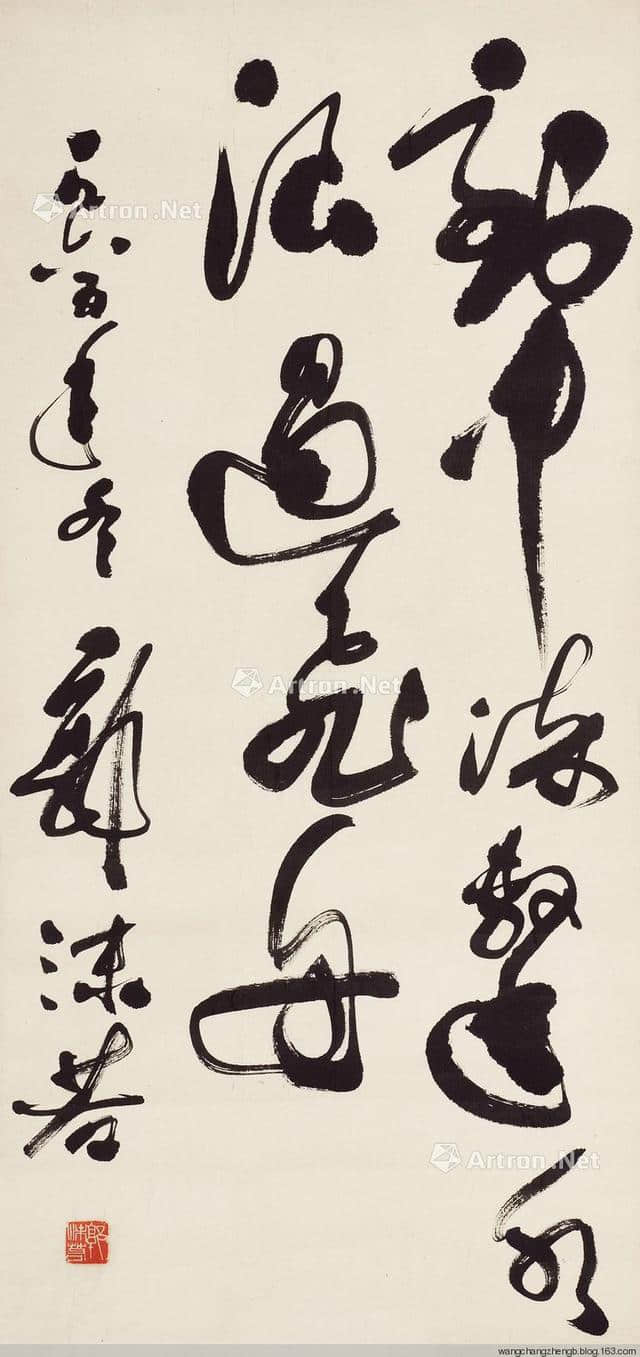 到中流擊水
浪遏飛舟
一九六五年冬 郭沫若
郭沫若
Artron.Net
Artron.Net
Artron.Net
wangchangzhengb.blog.163.com